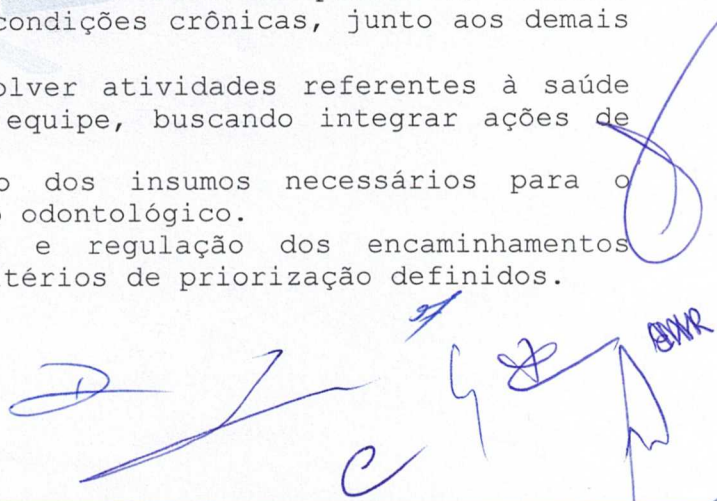 condições crônicas, junto aos demais
olver atividades referentes à saúde
equipe, buscando integrar ações de
o dos insumos necessários para o
odontológico.
e regulação dos encaminhamentos
itérios de priorização definidos.